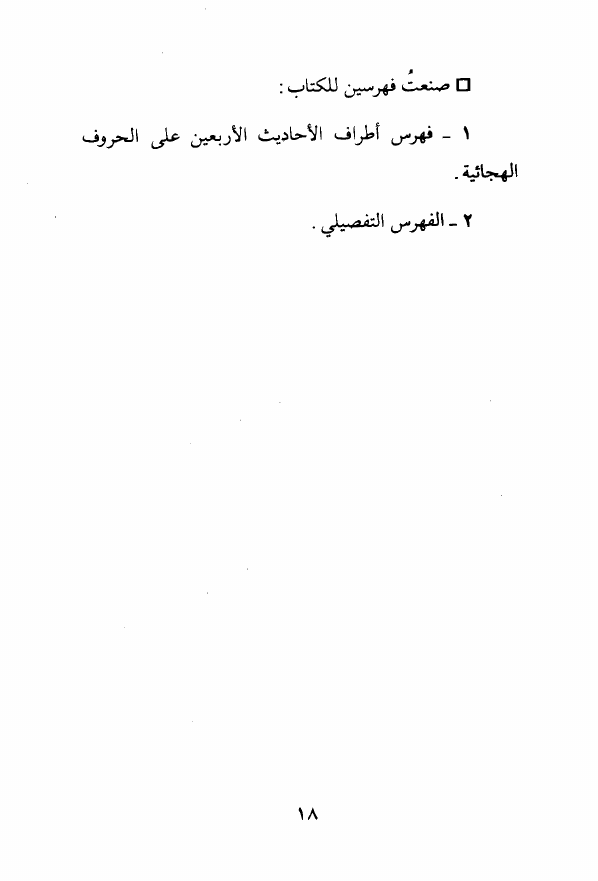 □ صنعتُ فهرسين للكتاب :
١ ـ فهرس أطراف الأحاديث الأربعين على الحروف
الهجائية .
٢ ـ الفهرس التفصيلي .
١٨